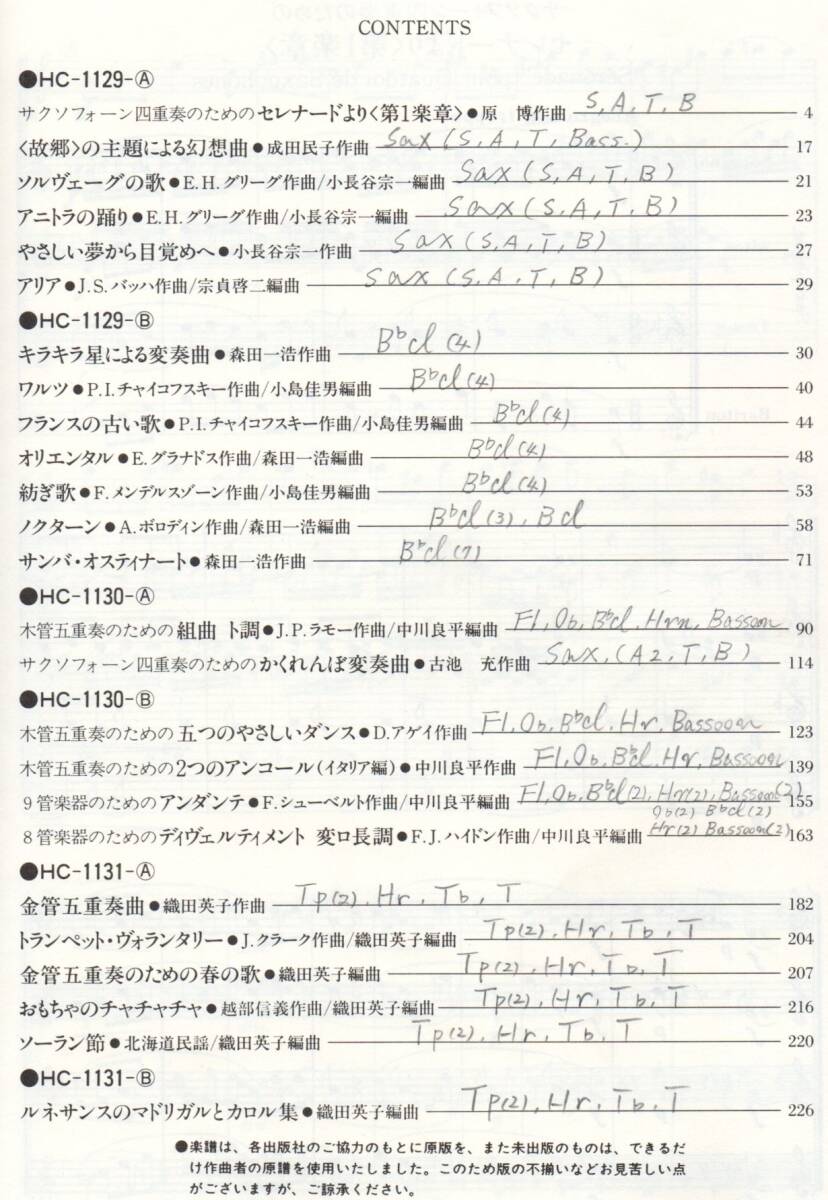 CONTENTS
●HC-1129-Ⓐ
サクソフォーン四重奏のためのセレナードより〈第1楽章〉●原 博作曲 S, A, T, B 4
〈故郷〉の主題による幻想曲●成田民子作曲 Sax (S, A, T, Bass.) 17
ソルヴェーグの歌●E.H.グリーグ作曲/小長谷宗一編曲 Sax (S, A, T, B) 21
アニトラの踊り●E.H.グリーグ作曲/小長谷宗一編曲 Sax (S, A, T, B) 23
やさしい夢から目覚めへ●小長谷宗一作曲 Sax (S, A, T, B) 27
アリア●J.S.バッハ作曲/宗貞啓二編曲 Sax (S, A, T, B) 29
●HC-1129-Ⓑ
キラキラ星による変奏曲●森田一浩作曲 B♭cl (4) 30
ワルツ●P.I.チャイコフスキー作曲/小島佳男編曲 B♭cl (4) 40
フランスの古い歌●P.I.チャイコフスキー作曲/小島佳男編曲 B♭cl (4) 44
オリエンタル●E.グラナドス作曲/森田一浩編曲 B♭cl (4) 48
紡ぎ歌●F.メンデルスゾーン作曲/小島佳男編曲 B♭cl (4) 53
ノクターン●A.ボロディン作曲/森田一浩編曲 B♭cl (3), Bcl 58
サンバ・オスティナート●森田一浩作曲 B♭cl (7) 71
●HC-1130-Ⓐ
木管五重奏のための組曲 ト調●J.P.ラモー作曲/中川良平編曲 Fl, Ob, B♭cl, Hrn, Bassoon 90
サクソフォーン四重奏のためのかくれんぼ変奏曲●古池 充作曲 Sax, (A2, T, B) 114
●HC-1130-Ⓑ
木管五重奏のための五つのやさしいダンス●D.アゲイ作曲 Fl, Ob, B♭cl, Hr, Bassoon 123
木管五重奏のための2つのアンコール(イタリア編)●中川良平作曲 Fl, Ob, B♭cl, Hr, Bassoon 139
9管楽器のためのアンダンテ●F.シューベルト作曲/中川良平編曲 Fl, Ob, B♭cl (2), Hr (2), Bassoon (2) 155
8管楽器のためのディヴェルティメント 変ロ長調●F.J.ハイドン作曲/中川良平編曲 Ob (2) B♭cl (2) Hr (2) Bassoon (2) 163
●HC-1131-Ⓐ
金管五重奏曲●織田英子作曲 Tp (2), Hr, Tb, T 182
トランペット・ヴォランタリー●J.クラーク作曲/織田英子編曲 Tp (2), Hr, Tb, T 204
金管五重奏のための春の歌●織田英子編曲 Tp (2), Hr, Tb, T 207
おもちゃのチャチャチャ●越部信義作曲/織田英子編曲 Tp (2), Hr, Tb, T 216
ソーラン節●北海道民謡/織田英子編曲 Tp (2), Hr, Tb, T 220
●HC-1131-Ⓑ
ルネサンスのマドリガルとカロル集●織田英子編曲 Tp (2), Hr, Tb, T 226
●楽譜は、各出版社のご協力のもとに原版を、また未出版のものは、できるだ
け作曲者の原譜を使用いたしました。このため版の不揃いなどお見苦しい点
がございますが、ご諒承ください。